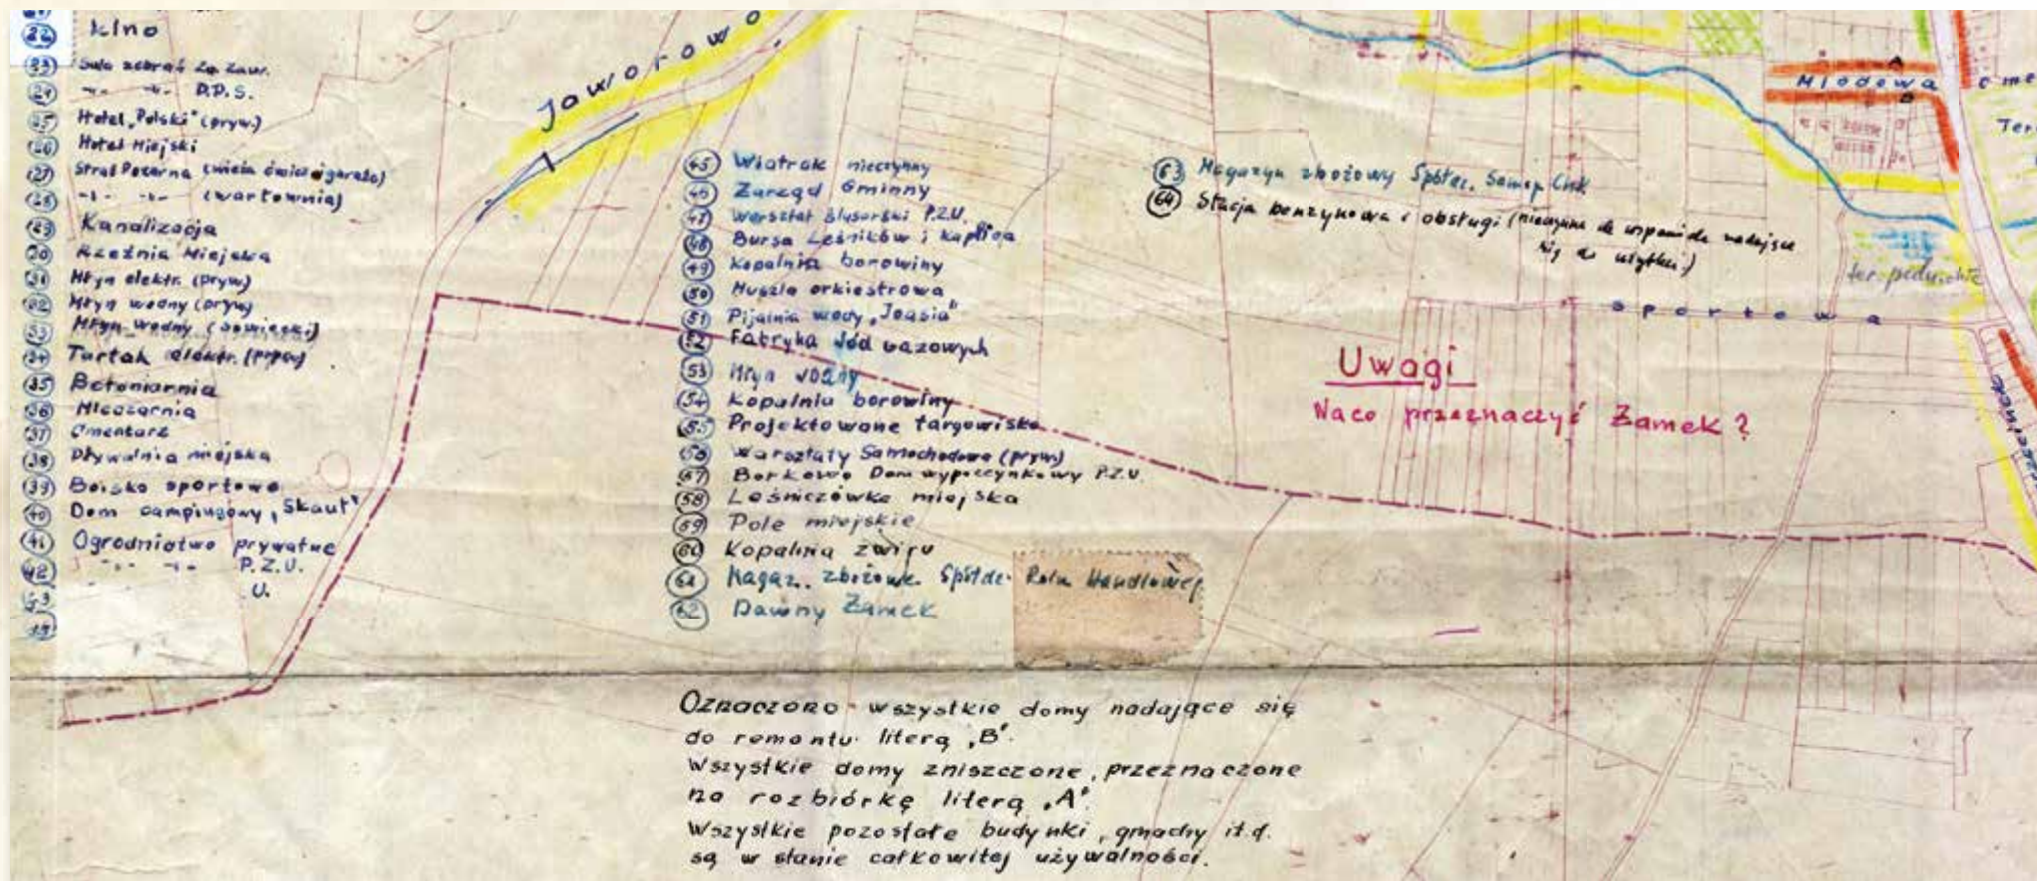 22 Kino
23 Sala zebrań Zw. Zaw.
24 -"- -"- P.P.S.
25 Hotel „Polski" (pryw.)
26 Hotel Miejski
27 Straż Pożarna (wieża ćwicz. i garaże)
28 -"- -"- (wartownia)
29 Kanalizacja
30 Rzeźnia Miejska
31 Młyn elektr. (pryw)
32 Młyn wodny (pryw)
33 Młyn wodny (sowiecki)
34 Tartak elektr. (pryw)
35 Betoniarnia
36 Mleczarnia
37 Cmentarz
38 Pływalnia miejska
39 Boisko sportowe
40 Dom campingowy „Skaut"
41 Ogrodnictwo prywatne
42 -"- -"- P.Z.U.
43 U.
Jaworowo
45 Wiatrak nieczynny
46 Zarząd Gminny
47 Warsztat ślusarski P.Z.U.
48 Bursa Leśników i kaplica
49 Kopalnia borowiny
50 Muszla orkiestrowa
51 Pijalnia wody „Joasia"
52 Fabryka wód gazowych
53 Młyn wodny
54 Kopalnia borowiny
55 Projektowane targowisko
56 Warsztaty Samochodowe (pryw)
57 Borkowo Dom wypoczynkowy P.Z.U.
58 Leśniczówka miejska
59 Pole miejskie
60 Kopalnia żwiru
61 Magaz. zbożowe Spółdz. Roln Handlowej
62 Dawny Zamek
63 Magazyn zbożowy Spółdz. Samop Chł
64 Stacja benzynowa i obsługi (nieczynna
się do użytku)
Miodowa
A
B
Cme
Ter
ter. podmokłe
Sportowa
Uwagi
Na co przeznaczyć Zamek?
Oznaczono wszystkie domy nadające się
do remontu literą „B".
Wszystkie domy zniszczone, przeznaczone
na rozbiórkę literą „A".
Wszystkie pozostałe budynki, gmachy it.d.
są w stanie całkowitej używalności.